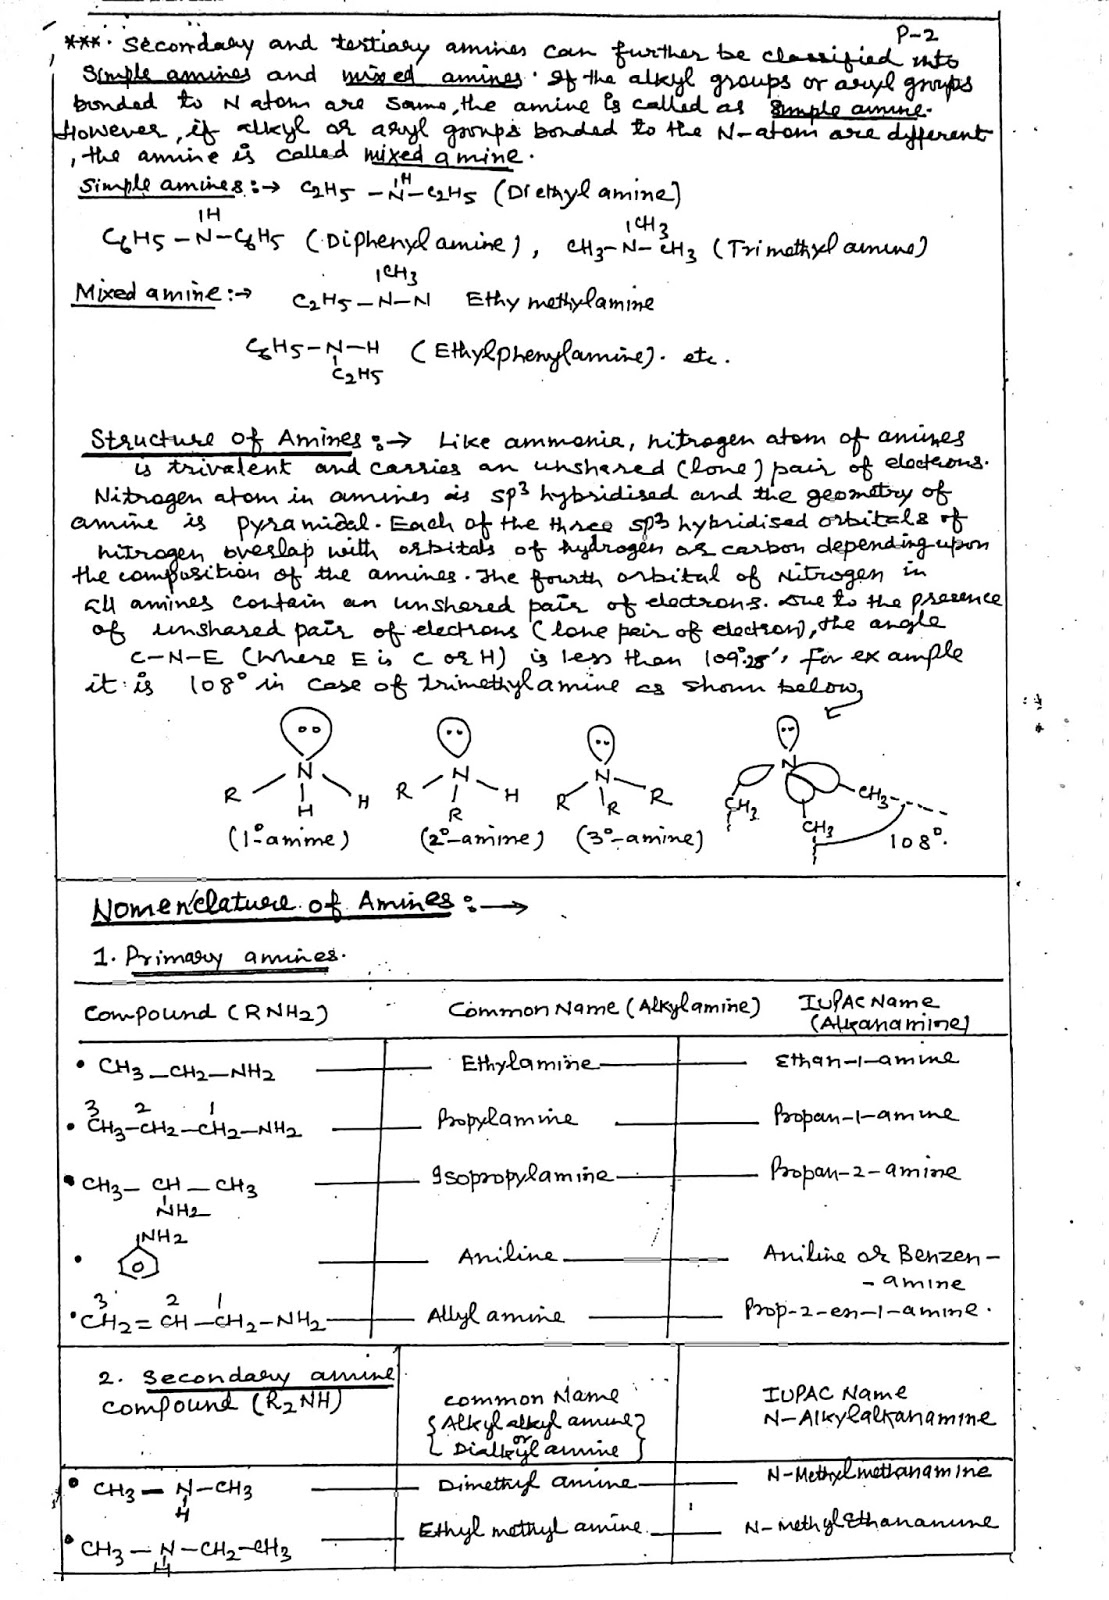 P-2
***. Secondary and tertiary amines can further be classified into
Simple amines and mixed amines. If the alkyl groups or aryl groups
bonded to N atom are same, the amine is called as simple amine.
However, if alkyl or aryl groups bonded to the N-atom are different
, the amine is called mixed amine.
Simple amines :→ C2H5 – N – C2H5 (Diethyl amine)
H
H
C6H5 – N – C6H5 (Diphenyl amine), CH3 – N – CH3 (Trimethyl amine)
CH3
CH3
Mixed amine :→ C2H5 – N – N Ethy methylamine
C6H5 – N – H (Ethylphenylamine). etc.
C2H5
Structure of Amines :→ Like ammonia, nitrogen atom of amines
is trivalent and carries an unshared (lone) pair of electrons.
Nitrogen atom in amines is sp3 hybridised and the geometry of
amine is pyramidal. Each of the three sp3 hybridised orbitals of
nitrogen overlap with orbitals of hydrogen or carbon depending upon
the composition of the amines. The fourth orbital of Nitrogen in
all amines contain an unshared pair of electrons. Due to the presence
of unshared pair of electrons (lone pair of electron), the angle
C–N–E (where E is C or H) is less than 109°.28', for example
it is 108° in case of trimethylamine as shown below,
N N N N
R H R H R R CH3 CH3
H R R CH3
(1°-amine) (2°-amine) (3°-amine) 108°.
Nomenclature of Amines :→
1. Primary amines.
Compound (RNH2) Common Name (Alkylamine) IUPAC Name
(Alkanamine)
• CH3 – CH2 – NH2 Ethylamine Ethan-1-amine
3 2 1
• CH3 – CH2 – CH2 – NH2 Propylamine Propan-1-amine
• CH3 – CH – CH3 Isopropylamine Propan-2-amine
NH2
NH2
• Aniline Aniline or Benzen-
- amine
3 2 1
• CH2 = CH – CH2 – NH2 Allyl amine Prop-2-en-1-amine.
2. Secondary amine
compound (R2NH) common Name IUPAC Name
{Alkyl alkyl amine} N-Alkylalkanamine
or
{Dialkyl amine}
• CH3 – N – CH3 Dimethyl amine N-Methylmethanamine
H
• CH3 – N – CH2 – CH3 Ethyl methyl amine N-methylEthanamine
H